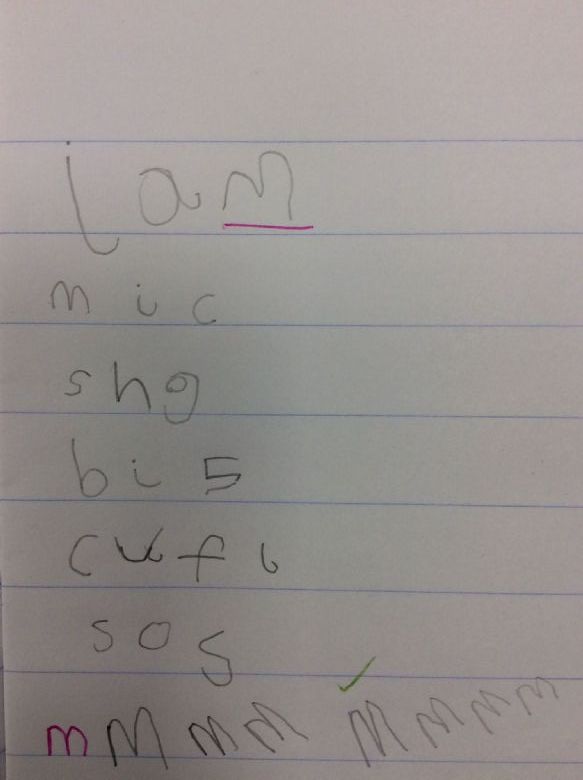 jam
mic
shg
bis
cufi
sos
mMmm Mmmm